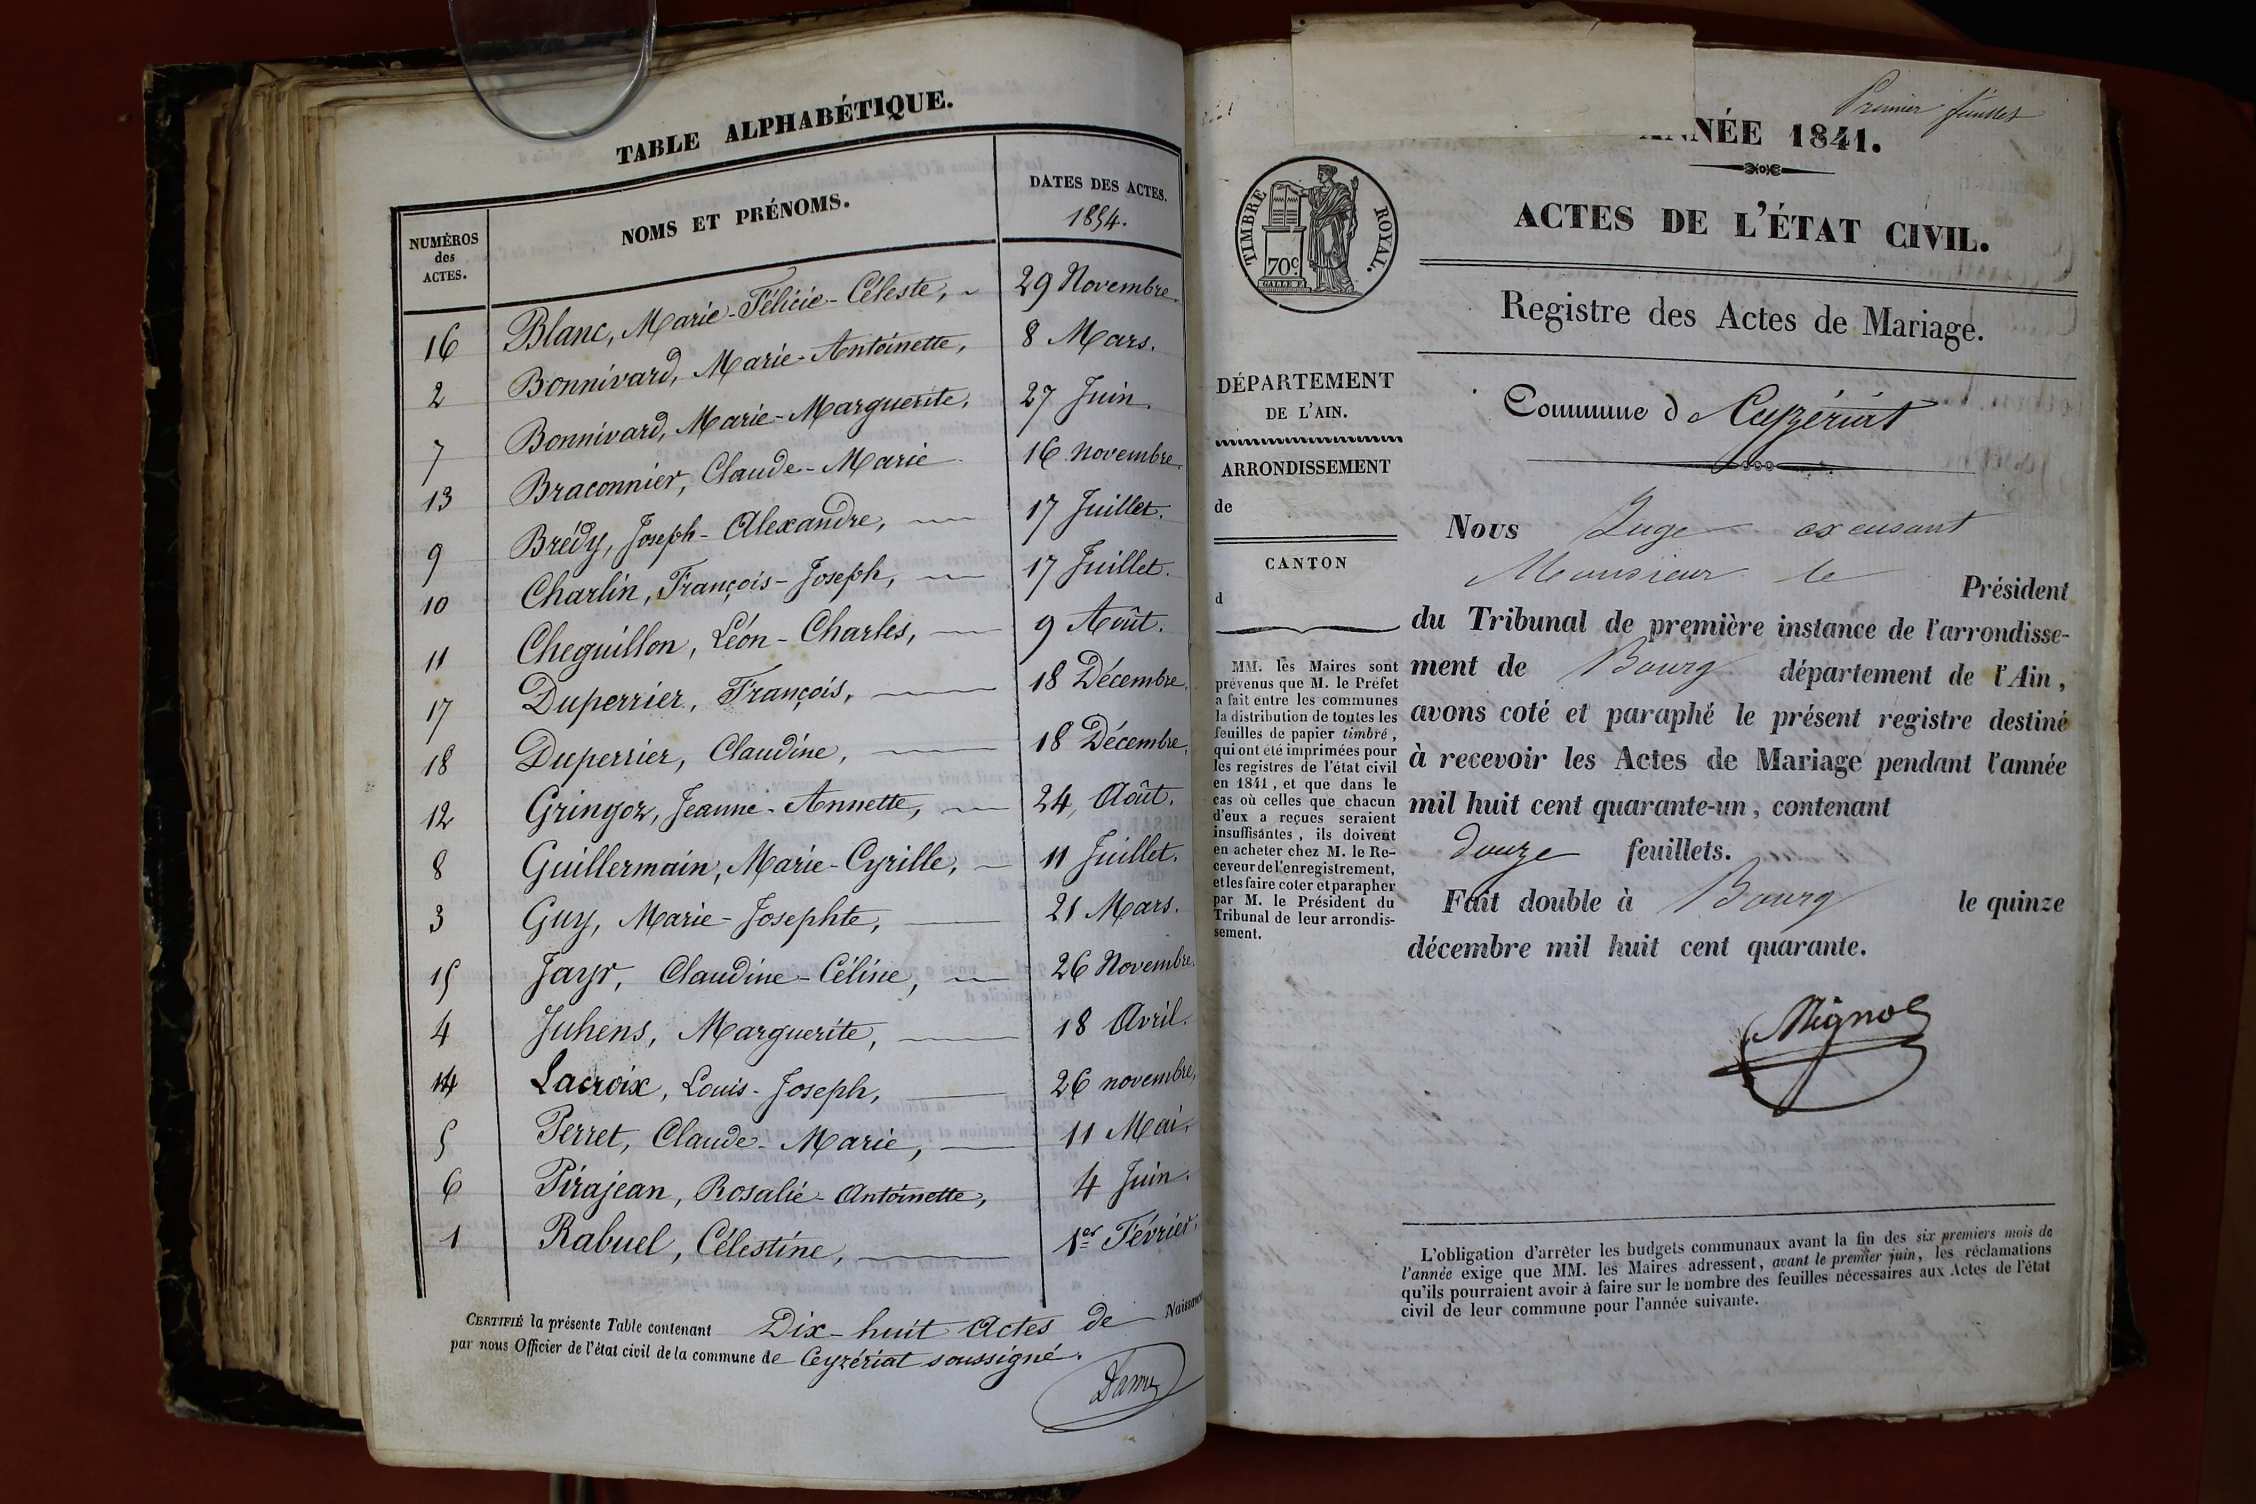 TABLE ALPHABÉTIQUE.
NUMÉROS des ACTES.
NOMS ET PRÉNOMS.
DATES DES ACTES.
1854.
16 Blanc, Marie-Félicie-Céleste, 29 Novembre.
2 Bonnivard, Marie-Antoinette, 8 Mars.
7 Bonnivard, Marie-Marguerite, 27 Juin.
13 Braconnier, Claude-Marie 16 novembre.
9 Brédy, Joseph-Alexandre, 17 Juillet.
10 Charlin, François-Joseph, 17 Juillet.
11 Cheguillon, Léon-Charles, 9 Août.
17 Duperrier, François, 18 Décembre.
18 Duperrier, Claudine, 18 Décembre,
12 Gringoz, Jeanne-Annette, 24, Août.
8 Guillermain, Marie-Cyrille, 11 Juillet.
3 Guy, Marie-Josephte, 21 Mars.
15 Jayr, Claudine-Céline, 26 Novembre.
4 Juhens, Marguerite, 18 Avril.
14 Lacroix, Louis-Joseph, 26 novembre,
5 Perret, Claude-Marie, 11 Mai.
6 Pirajean, Rosalie-Antoinette, 4 Juin.
1 Rabuel, Célestine, 1er Février.
CERTIFIÉ la présente Table contenant Dix-huit Actes de Naissance
par nous Officier de l'état civil de la commune de Ceyzériat soussigné.
Premier feuillet
ANNÉE 1841.
TIMBRE ROYAL.
70c
ACTES DE L'ÉTAT CIVIL.
Registre des Actes de Mariage.
Commune d Ceyzériat
DÉPARTEMENT
DE L'AIN.
ARRONDISSEMENT
de
CANTON
d
MM. les Maires sont
prévenus que M. le Préfet
a fait entre les communes
la distribution de toutes les
feuilles de papier timbré,
qui ont été imprimées pour
les registres de l'état civil
en 1841, et que dans le
cas où celles que chacun
d'eux a reçues seraient
insuffisantes, ils doivent
en acheter chez M. le Re-
ceveur de l'enregistrement,
et les faire coter et parapher
par M. le Président du
Tribunal de leur arrondis-
sement.
Nous Juge excusant
Monsieur le Président
du Tribunal de première instance de l'arrondisse-
ment de Bourg département de l'Ain,
avons coté et paraphé le présent registre destiné
à recevoir les Actes de Mariage pendant l'année
mil huit cent quarante-un, contenant
douze feuillets.
Fait double à Bourg le quinze
décembre mil huit cent quarante.
L'obligation d'arrêter les budgets communaux avant la fin des six premiers mois de
l'année exige que MM. les Maires adressent, avant le premier juin, les réclamations
qu'ils pourraient avoir à faire sur le nombre des feuilles nécessaires aux Actes de l'état
civil de leur commune pour l'année suivante.